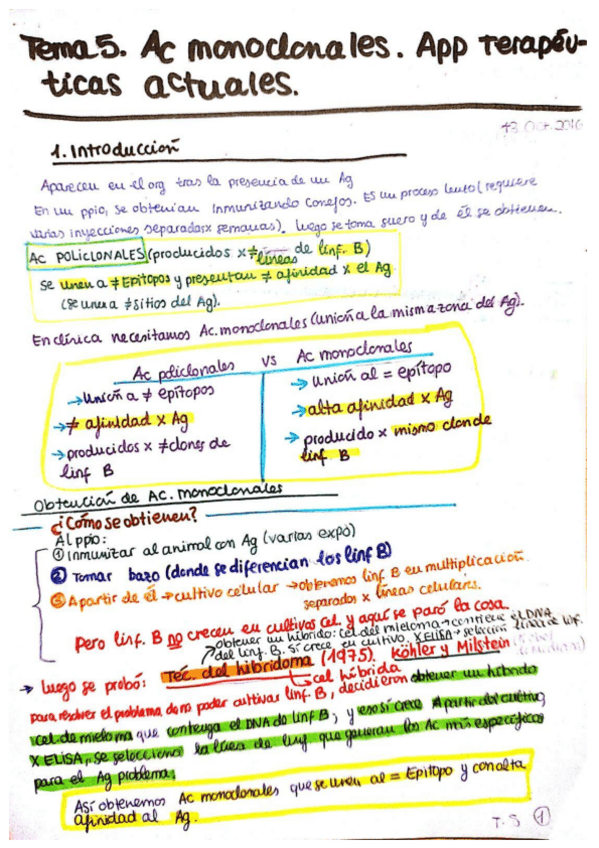 Tema 5. Ac monoclonales. App terapéu-
ticas actuales.
13 Oct. 2016
1. Introducción
Aparecen en el org tras la presencia de un Ag
En un ppio, se obtenían inmunizando conejos. Es un proceso lento (requiere
varias inyecciones separadas x semanas). Luego se toma suero y de él se obtienen.
AC POLICLONALES (producidos x ≠ líneas de linf. B)
se unen a ≠ Epítopos y presentan ≠ afinidad x el Ag
(se une a ≠ sitios del Ag).
En clínica necesitamos Ac. monoclonales (unión a la misma zona del Ag).
Ac policlonales vs Ac monoclonales
→ Unión a ≠ epítopos
→ ≠ afinidad x Ag
→ producidos x ≠ clones de
linf B
→ Unión al = epítopo
→ alta afinidad x Ag
→ producido x mismo clon de
linf B
Obtención de AC. monoclonales
¿Cómo se obtienen?
Al ppio:
① Inmunizar al animal con Ag (varias expo)
② Tomar bazo (donde se diferencian los linf B)
③ A partir de él → cultivo celular → obtenemos linf. B en multiplicación.
separados x líneas celulares.
Pero linf. B no crecen en cultivos cel. y aquí se paró la cosa.
obtener un híbrido: cel del mieloma → contiene el DNA
del linf. B. Sí crece en cultivo. X ELISA → selección línea de linf.
→ Luego se probó: Téc. del hibridoma (1975). Köhler y Milstein
cel híbrida
para resolver el problema de no poder cultivar linf. B, decidieron obtener un híbrido
: cel de mieloma que contenga el DNA de linf B; y eso sí crece. A partir del cultivo,
X ELISA, se selecciona la línea de linf que generan los Ac más específicos
para el Ag problema.
Así obtenemos Ac monoclonales que se unen al = Epítopo y con alta
afinidad al Ag.
T-5 ①